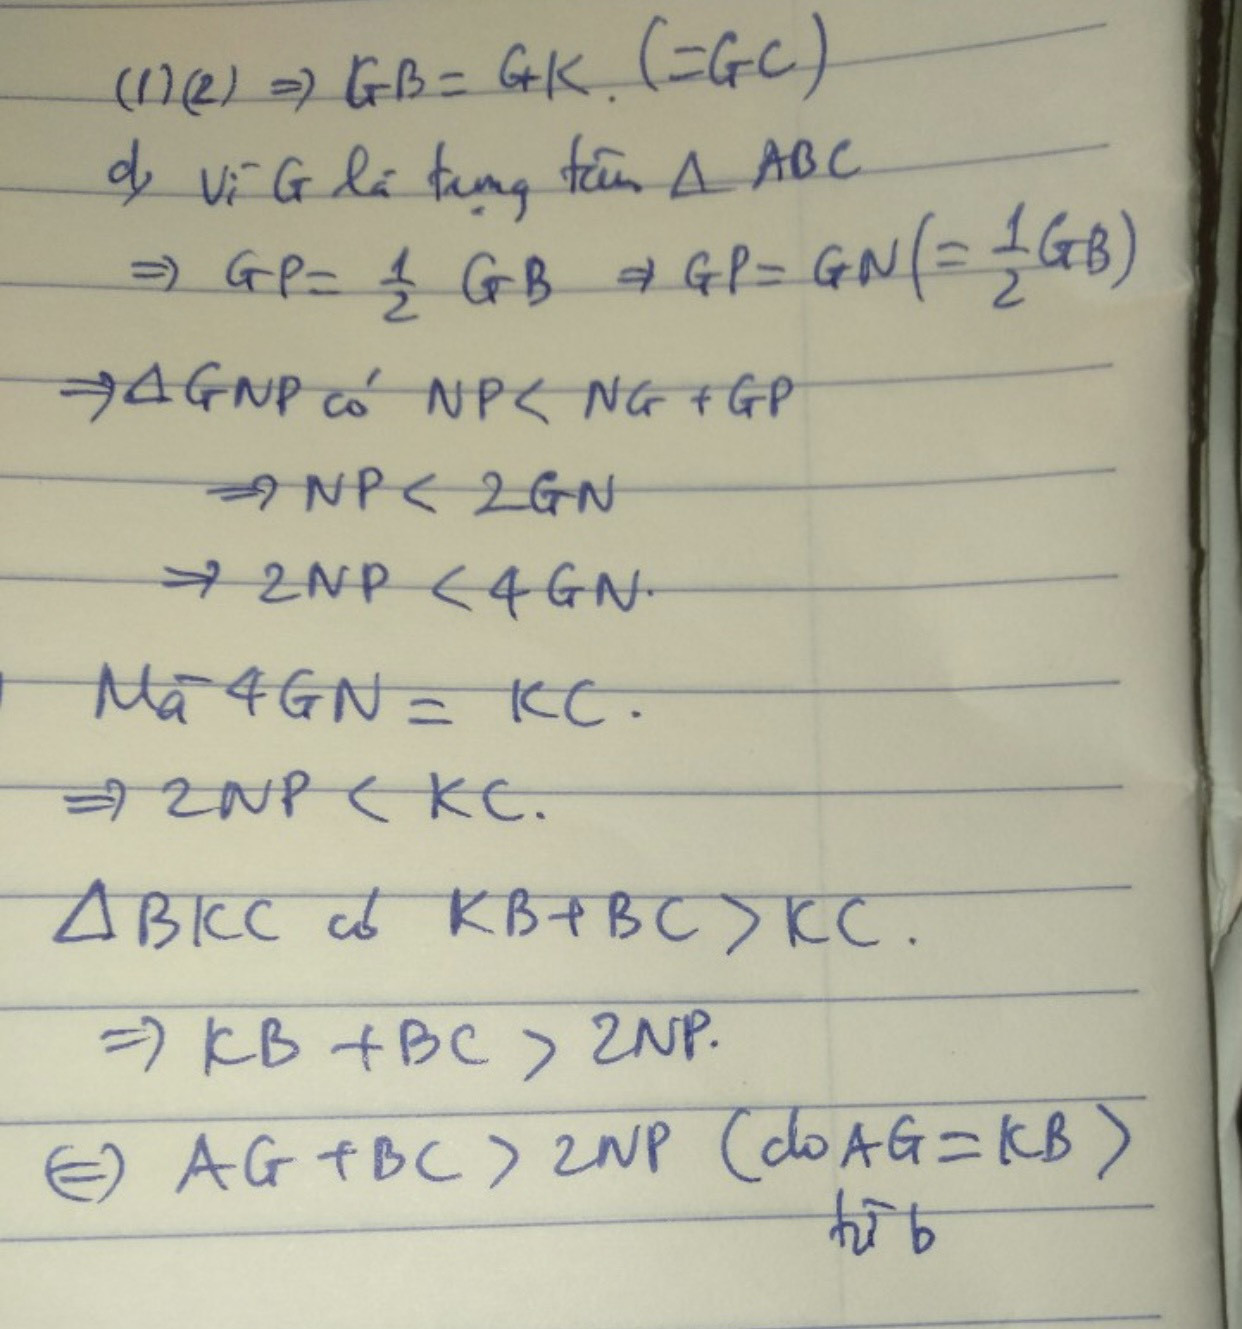 (1)(2) ⇒ GB = GK. (=GC)
d, Vì G là trọng tâm Δ ABC
⇒ GP = 1/2 GB ⇒ GP = GN (= 1/2 GB)
⇒ Δ GNP có NP < NG + GP
⇒ NP < 2GN
⇒ 2NP < 4GN.
Mà 4GN = KC.
⇒ 2NP < KC.
Δ BKC có KB + BC > KC.
⇒ KB + BC > 2NP.
⇔ AG + BC > 2NP (do AG = KB)
từ b